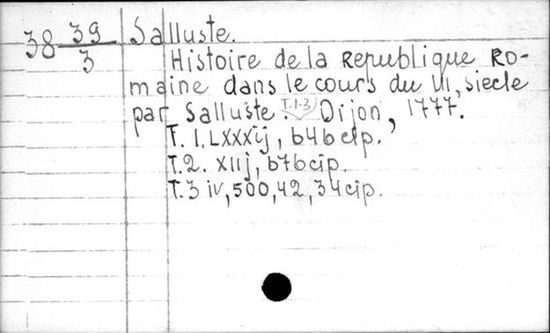 38 39/3 Salluste.
Histoire de la Republique Ro-
maine dans le cours du VII, siecle
par Salluste. T.1-3 Dijon, 1777.
T. I. LXXXij, 646 стр.
T.2. XIIj, 676 стр.
T.3 iv, 500, 42, 34 стр.